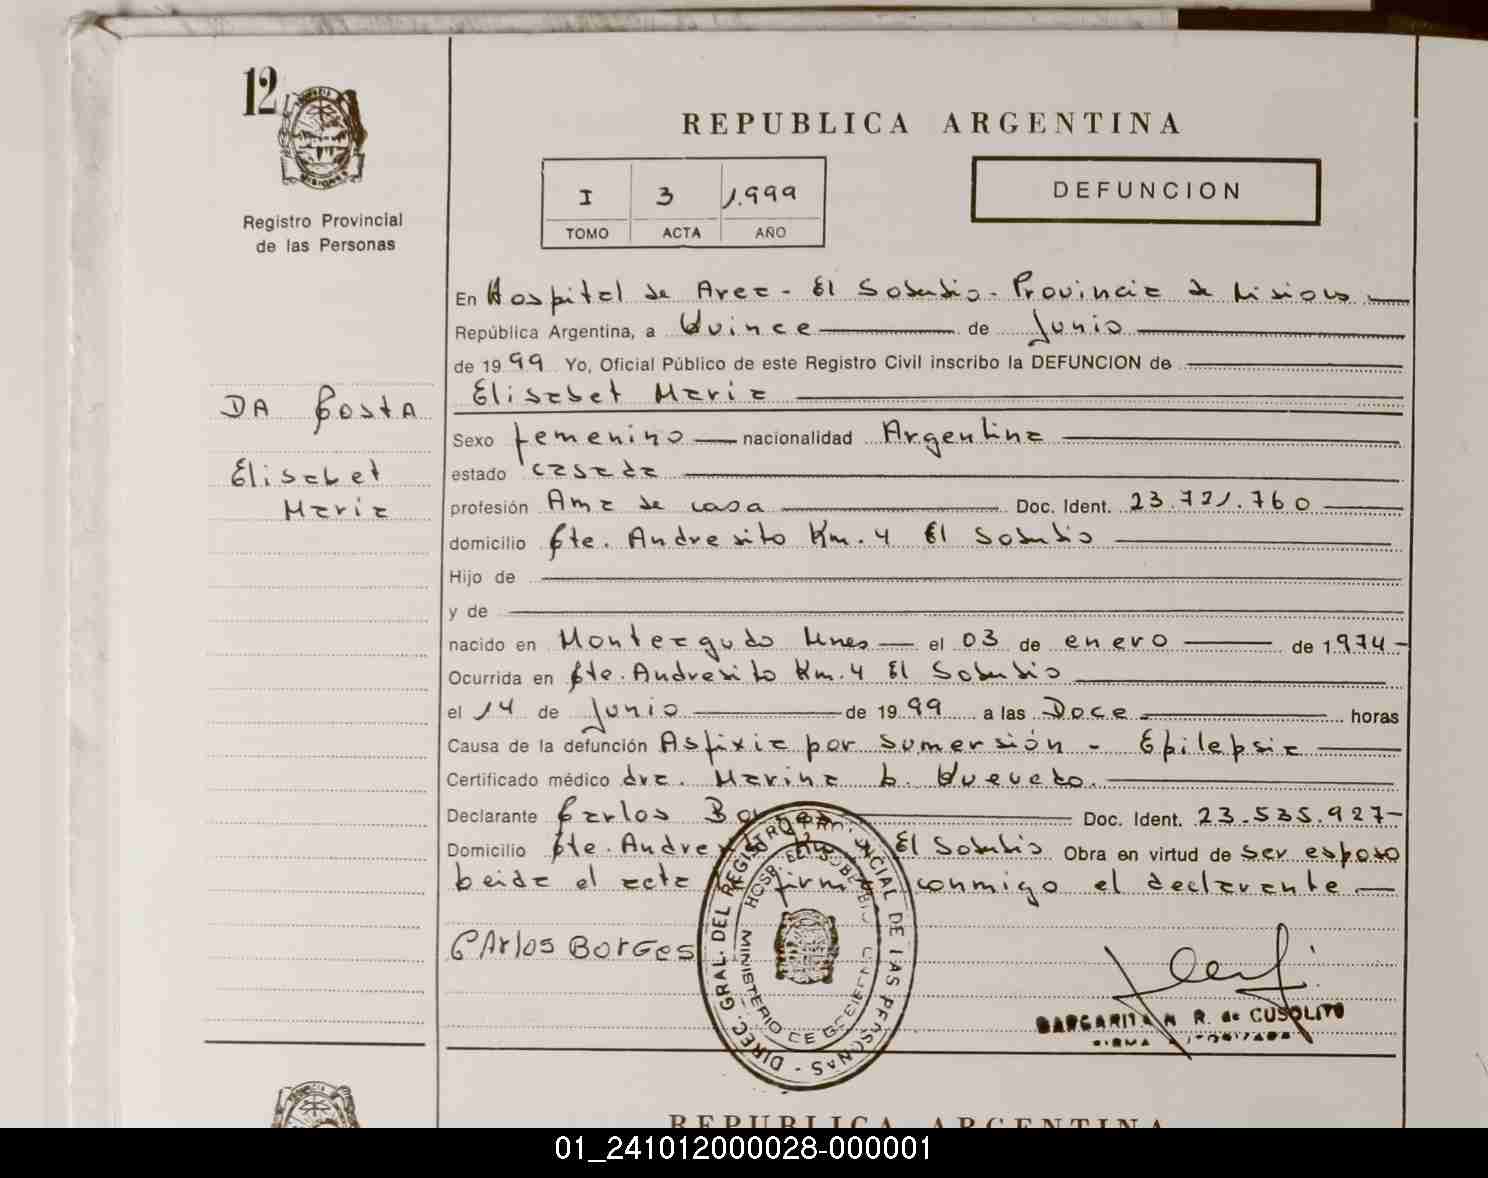 12
Registro Provincial
de las Personas
REPUBLICA ARGENTINA
I 3 1.999
TOMO ACTA AÑO
DEFUNCION
En Hospital de Area - El Soberbio - Provincia de Misiones
República Argentina, a Quince de Junio
de 1999 Yo, Oficial Público de este Registro Civil inscribo la DEFUNCION de
DA Costa
Elisabet
Maria
Elisabet Maria
Sexo femenino nacionalidad Argentina
estado casada
profesión Ama de casa Doc. Ident. 23.721.760
domicilio Cte. Andresito Km. 4 El Soberbio
Hijo de
y de
nacido en Monteagudo Mnes el 03 de enero de 1.974-
Ocurrida en Cte. Andresito Km. 4 El Soberbio
el 14 de Junio de 1999 a las Doce horas
Causa de la defunción Asfixia por sumersión - Epilepsia
Certificado médico dra. Marina
Declarante Carlos Doc. Ident. 23.535.927-
Domicilio Cte. El Soberbio Obra en virtud de ser esposo
leida el acta firma conmigo el declarante
CArlos BorGes
DIREC. GRAL. DEL REGISTRO PROVINCIAL DE LAS PERSONAS -
HOSP. EL SOBERBIO
MINISTERIO DE GOBIERNO
MARGARITA N R. de CUSOLITO
FIRMA AUTORIZADA
REPUBLICA ARGENTINA
01_241012000028-000001